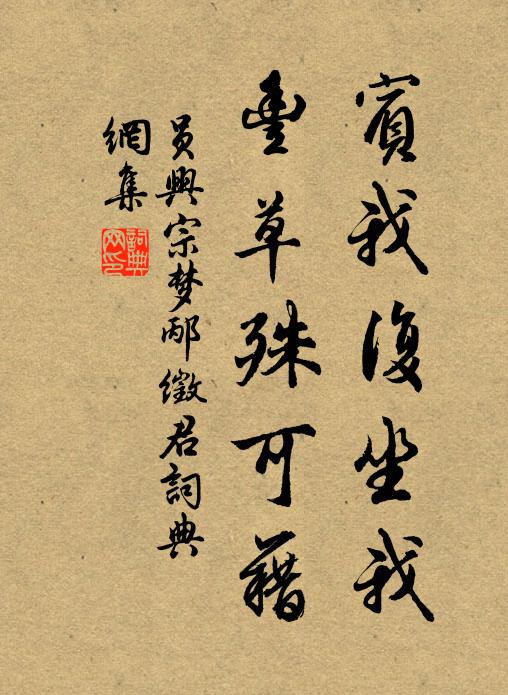 賓我復坐我
豊草殊可藉
員興宗梦邴徵君詞典
網集
詞典
网印